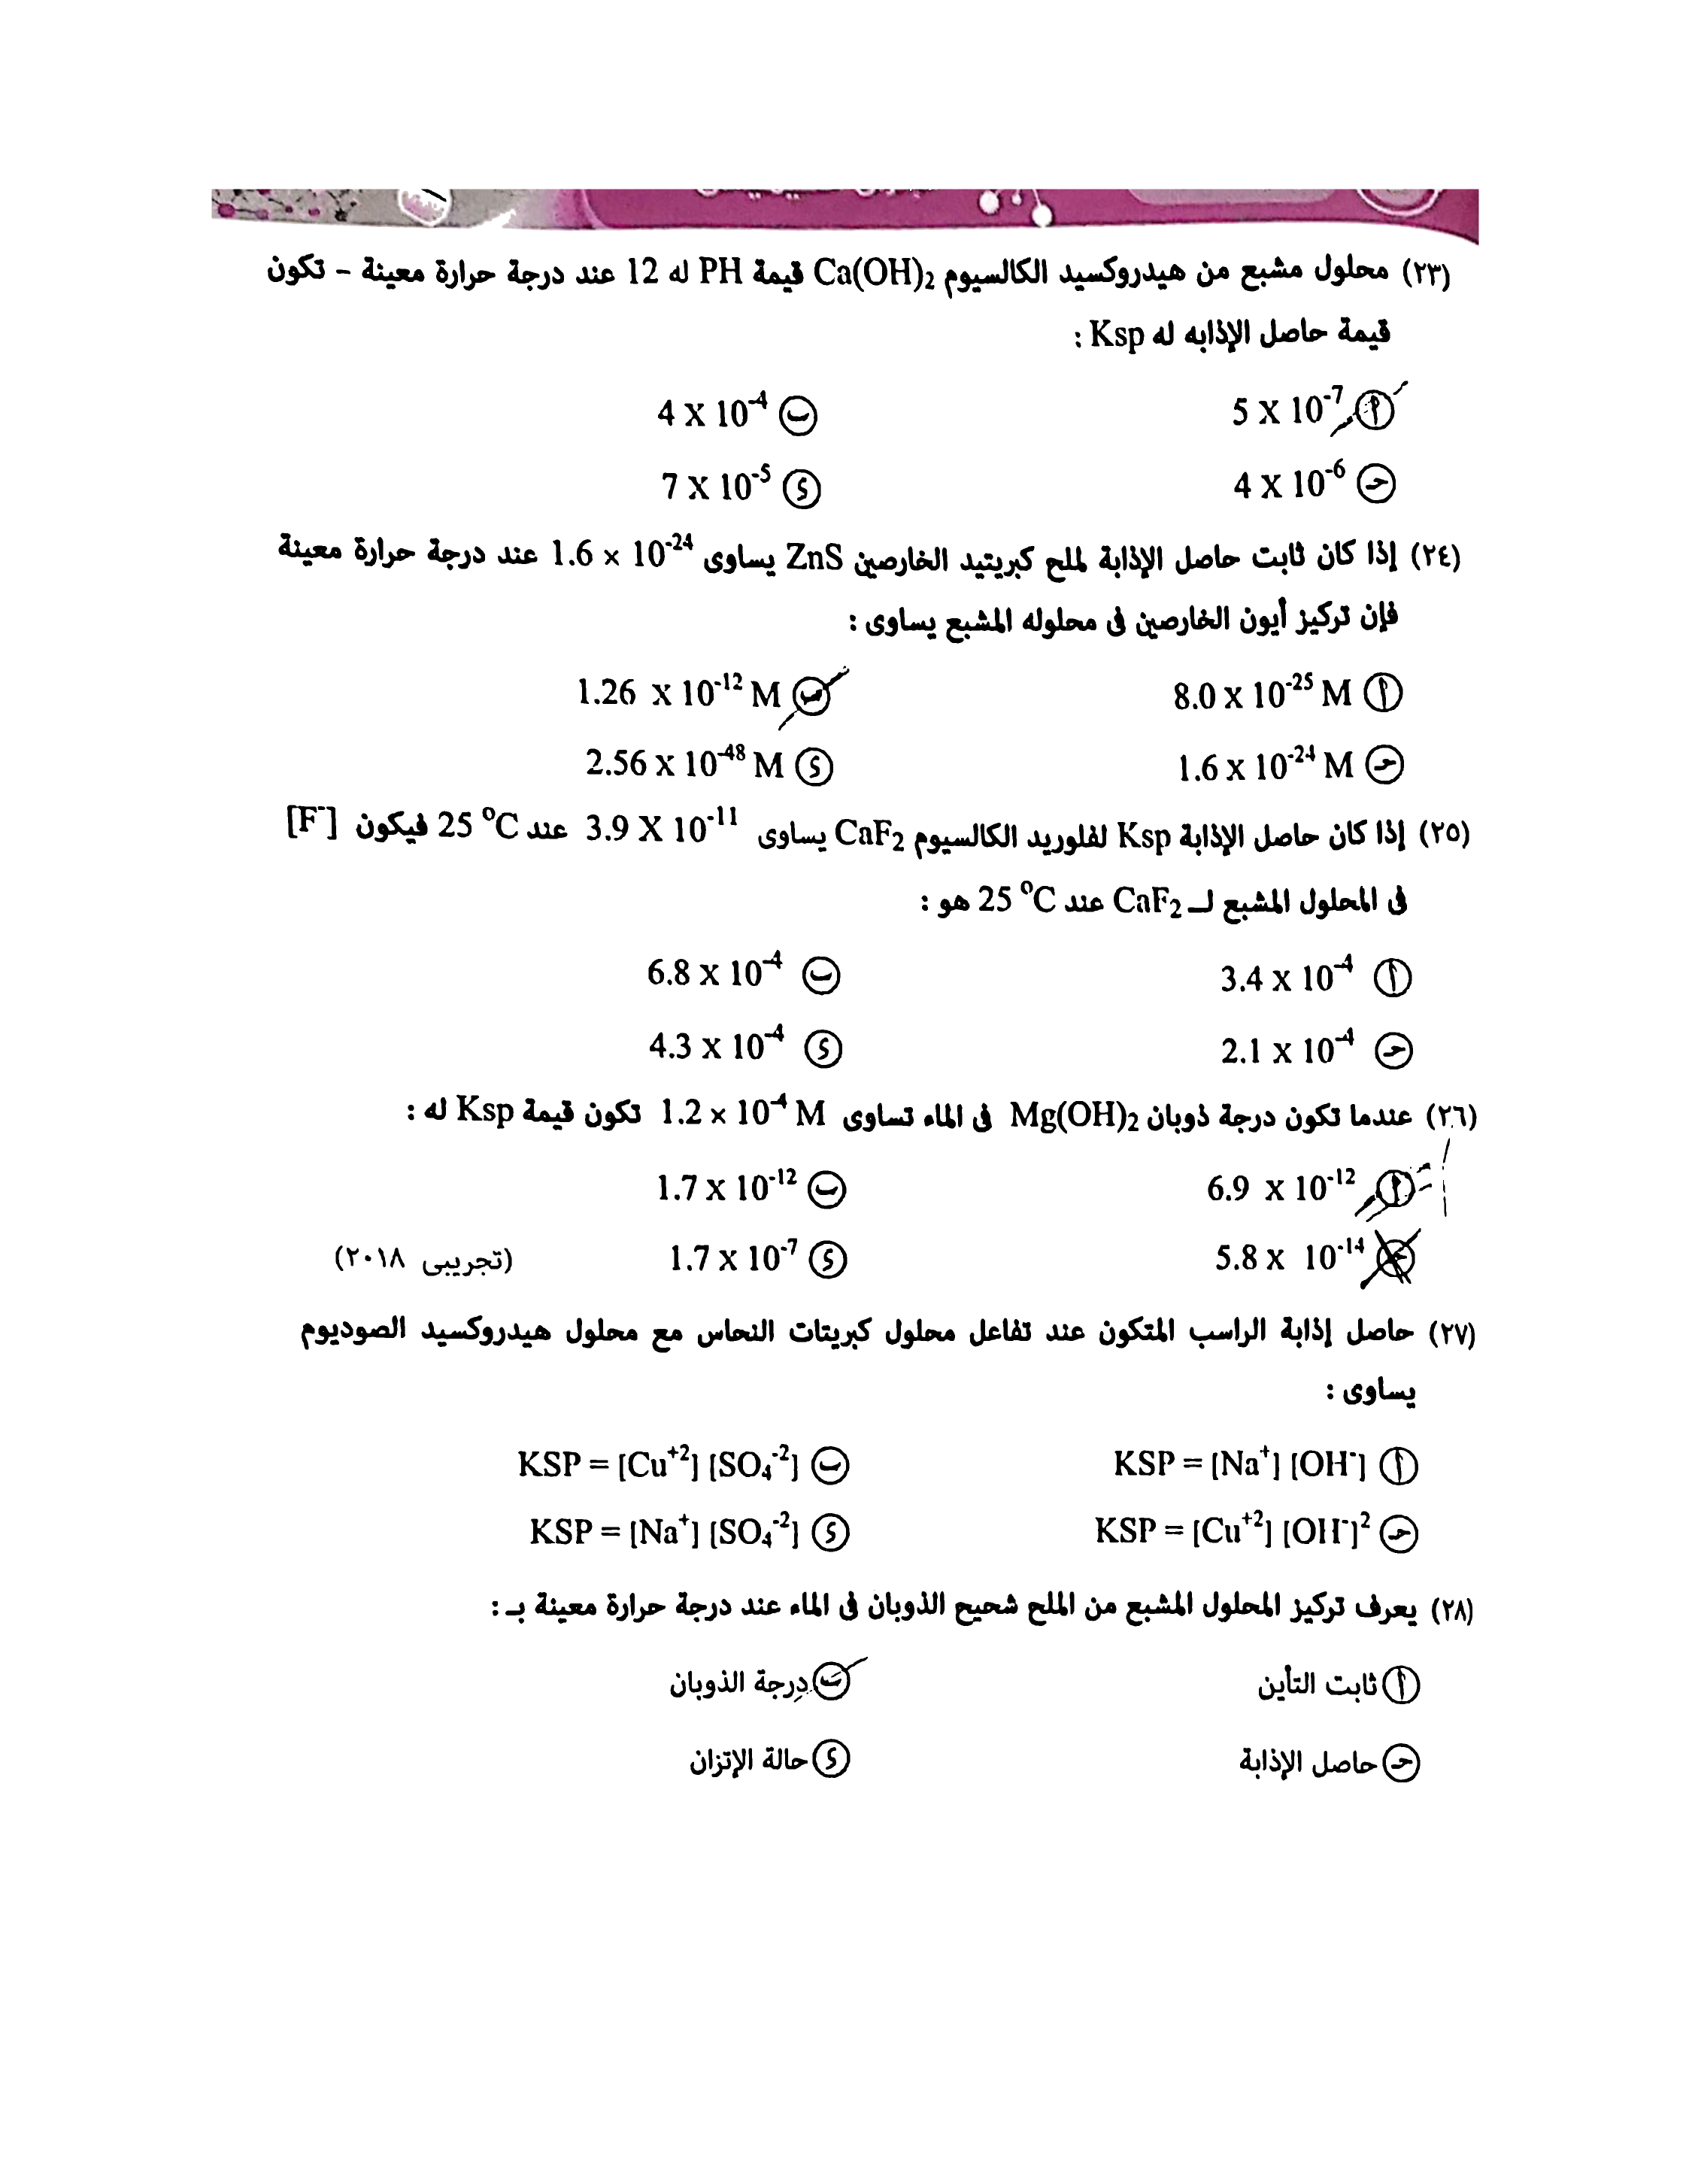 (٢٣) محلول مشبع من هيدروكسيد الكالسيوم Ca(OH)₂ قيمة PH له 12 عند درجة حرارة معينة – تكون
قيمة حاصل الإذابه له Ksp :
أ 5 X 10⁻⁷ ب 4 X 10⁻⁴
جـ 4 X 10⁻⁶ د 7 X 10⁻⁵
(٢٤) إذا كان ثابت حاصل الإذابة لملح كبريتيد الخارصين ZnS يساوى 1.6 × 10⁻²⁴ عند درجة حرارة معينة
فإن تركيز أيون الخارصين فى محلوله المشبع يساوى :
أ 8.0 x 10⁻²⁵ M ب 1.26 x 10⁻¹² M
جـ 1.6 x 10⁻²⁴ M د 2.56 x 10⁻⁴⁸ M
(٢٥) إذا كان حاصل الإذابة Ksp لفلوريد الكالسيوم CaF₂ يساوى 3.9 X 10⁻¹¹ عند 25 ⁰C فيكون [F⁻]
فى المحلول المشبع لـ CaF₂ عند 25 ⁰C هو :
أ 3.4 x 10⁻⁴ ب 6.8 x 10⁻⁴
جـ 2.1 x 10⁻⁴ د 4.3 x 10⁻⁴
(٢٦) عندما تكون درجة ذوبان Mg(OH)₂ فى الماء تساوى 1.2 × 10⁻⁴ M تكون قيمة Ksp له :
أ 6.9 x 10⁻¹² ب 1.7 x 10⁻¹²
جـ 5.8 x 10⁻¹⁴ د 1.7 x 10⁻⁷ (تجريبى ٢٠١٨)
(٢٧) حاصل إذابة الراسب المتكون عند تفاعل محلول كبريتات النحاس مع محلول هيدروكسيد الصوديوم
يساوى :
أ KSP = [Na⁺] [OH⁻] ب KSP = [Cu⁺²] [SO₄⁻²]
جـ KSP = [Cu⁺²] [OH⁻]² د KSP = [Na⁺] [SO₄⁻²]
(٢٨) يعرف تركيز المحلول المشبع من الملح شحيح الذوبان فى الماء عند درجة حرارة معينة بـ :
أ ثابت التأين ب درجة الذوبان
جـ حاصل الإذابة د حالة الإتزان